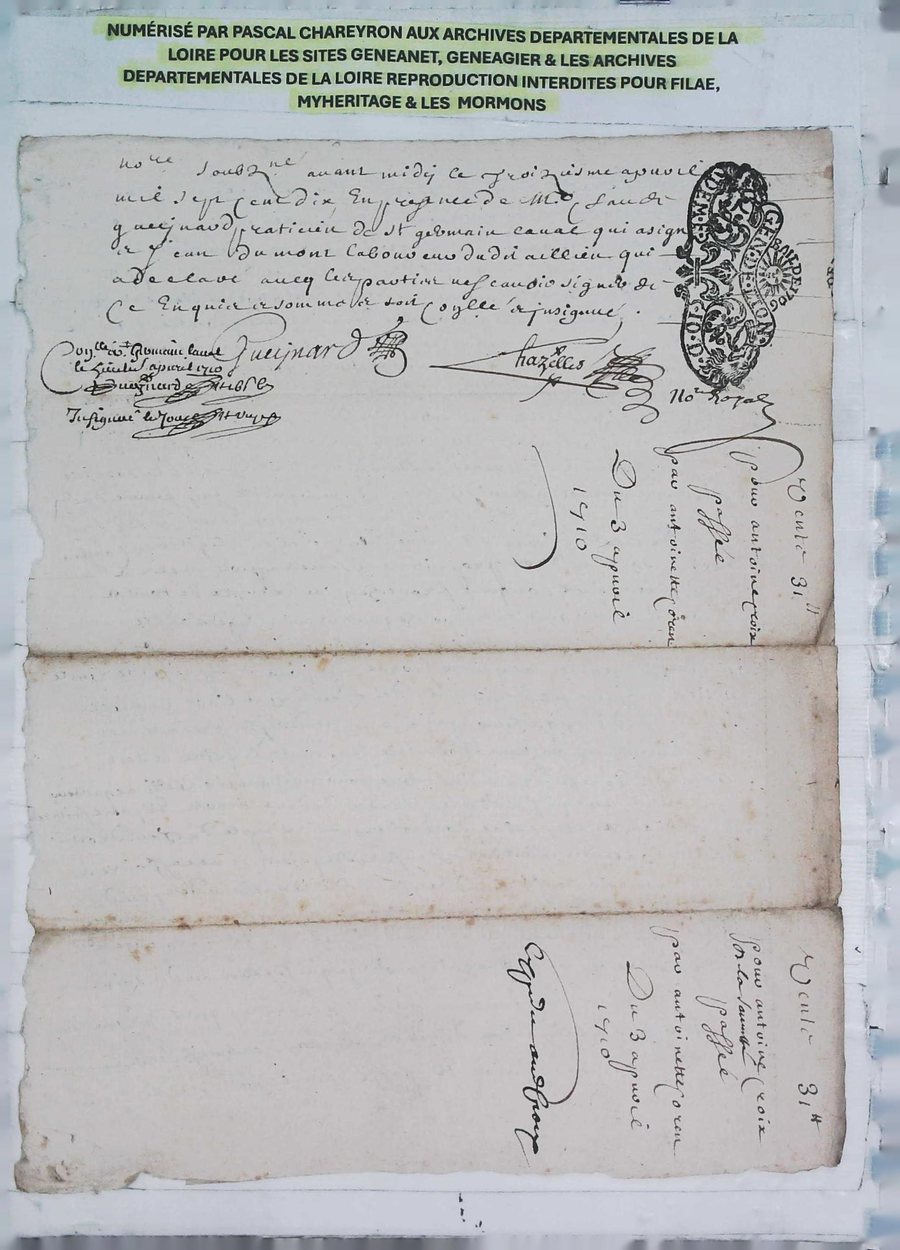 NUMÉRISÉ PAR PASCAL CHAREYRON AUX ARCHIVES DEPARTEMENTALES DE LA
LOIRE POUR LES SITES GENEANET, GENEAGIER & LES ARCHIVES
DEPARTEMENTALES DE LA LOIRE REPRODUCTION INTERDITES POUR FILAE,
MYHERITAGE & LES MORMONS
no.re soubz.né avant midy le troizisme apvril
mil sept cent dix En presence de M.e Claude
gueynard praticien de st germain laval qui a signé
et Jean du mont laboureur dudit aillieu qui
a declaré avec les parties ne scavoir signer de
Ce Enquis et sommés soit Coyllé et insigné.
GEN. DE LION.
BAIL DE 1706
Coyllé a st Germain laval
le apvril 1710
Gueynard
Chazelles
No.re Royal
Insigné le jour
Vente 31 tt
pour antoine croix
passée
par antoinette
Du 3 apvril
1710
Vente 31 tt
pour antoine croix
passée
par antoinette
Du 3 apvril
1710